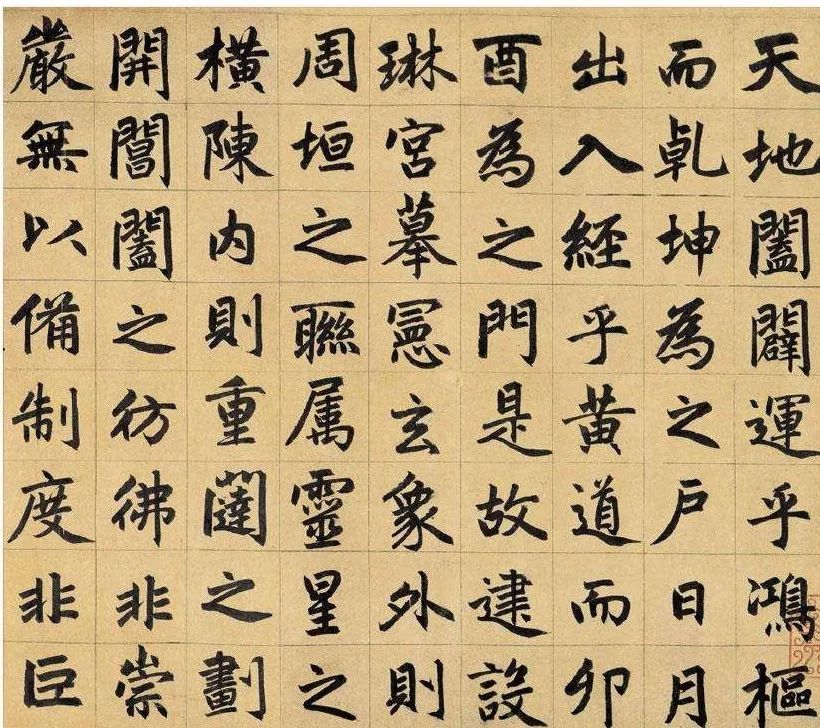 天地闔闢運乎鴻樞
而乹坤為之戶日月
出入經乎黃道而卯
酉為之門是故建設
琳宮摹憲玄象外則
周垣之聯属靈星之
橫陳內則重闥之劃
開閶闔之彷彿非崇
嚴無以備制度非巨